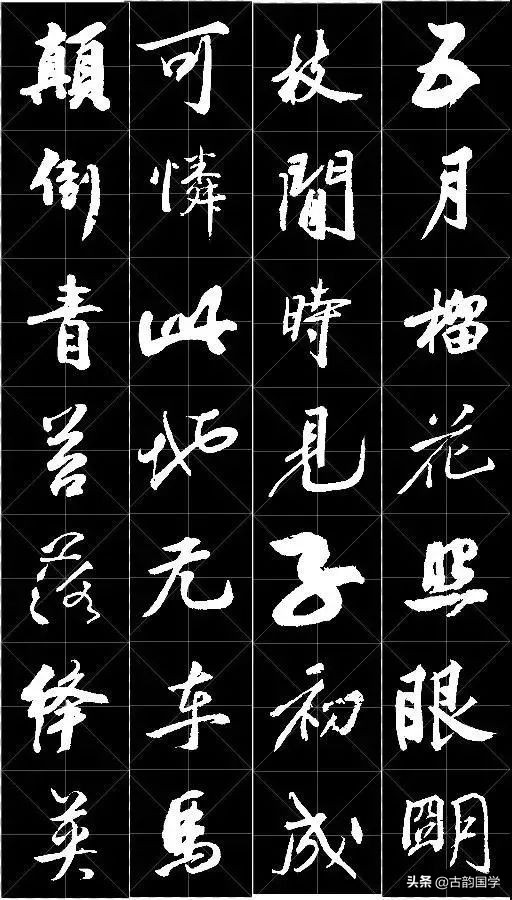 五月榴花照眼明
枝間時見子初成
可憐此地无车馬
顛倒青苔落绛英
头条 @古韵国学